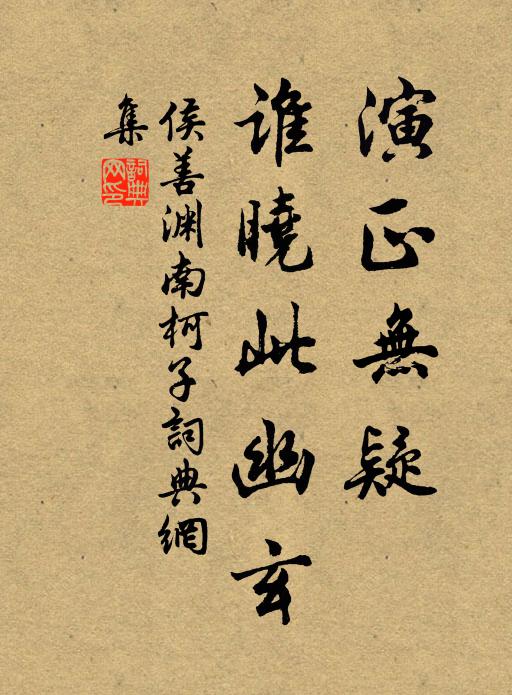 演正無疑
誰曉此幽玄
侯善渊南柯子詞典網
集
詞典
网印